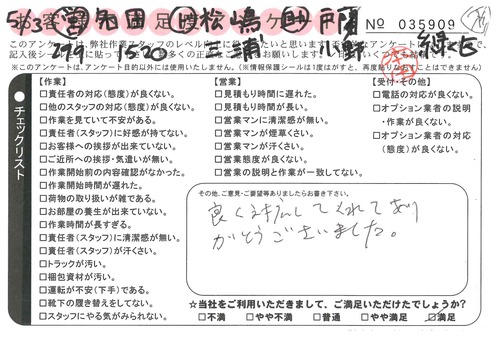 5/3 営 知田 松嶋 助 戸
249 1520 三浦 緑区
お客様満足度アンケート
No 035909
このアンケートは、弊社作業スタッフのレベル向上
※このアンケートは、アンケート目的以外には使用いたしません。(※情報保護シールは1度はがすと、再度貼りなおすことはできません)
チェックリスト
【作業】
□責任者の対応(態度)が良くない。
□他のスタッフの対応(態度)が良くない。
□作業を見ていて不安がある。
□責任者(スタッフ)に好感が持てない。
□お客様への挨拶が出来ていない。
□ご近所への挨拶・気遣いが無い。
□作業開始前の内容確認がなかった。
□作業開始時間が遅れた。
□荷物の取り扱いが雑である。
□お部屋の養生が出来ていない。
□作業時間が長すぎる。
□責任者(スタッフ)に清潔感が無い。
□責任者(スタッフ)が汗くさい。
□トラックが汚い。
□梱包資材が汚い。
□運転が不安(下手)である。
□靴下の履き替えをしてない。
□スタッフにやる気がみられない。
【営業】
□見積もり時間に遅れた。
□見積もり時間が長い。
□営業マンに清潔感が無い。
□営業マンが煙草くさい。
□営業マンが汗くさい。
□営業態度が良くない。
□営業の説明と作業が一致してない。
【受付・その他】
□電話の対応が良くない。
□オプション業者の説明・作業が良くない。
□オプション業者の対応(態度)が良くない。
その他、ご意見・ご要望等ありましたらお書き下さい。
良く対応してくれてあり
がとうございました。
☆当社をご利用いただきまして、ご満足いただけたでしょうか?
□不満 □やや不満 □普通 □やや満足 ☑満足